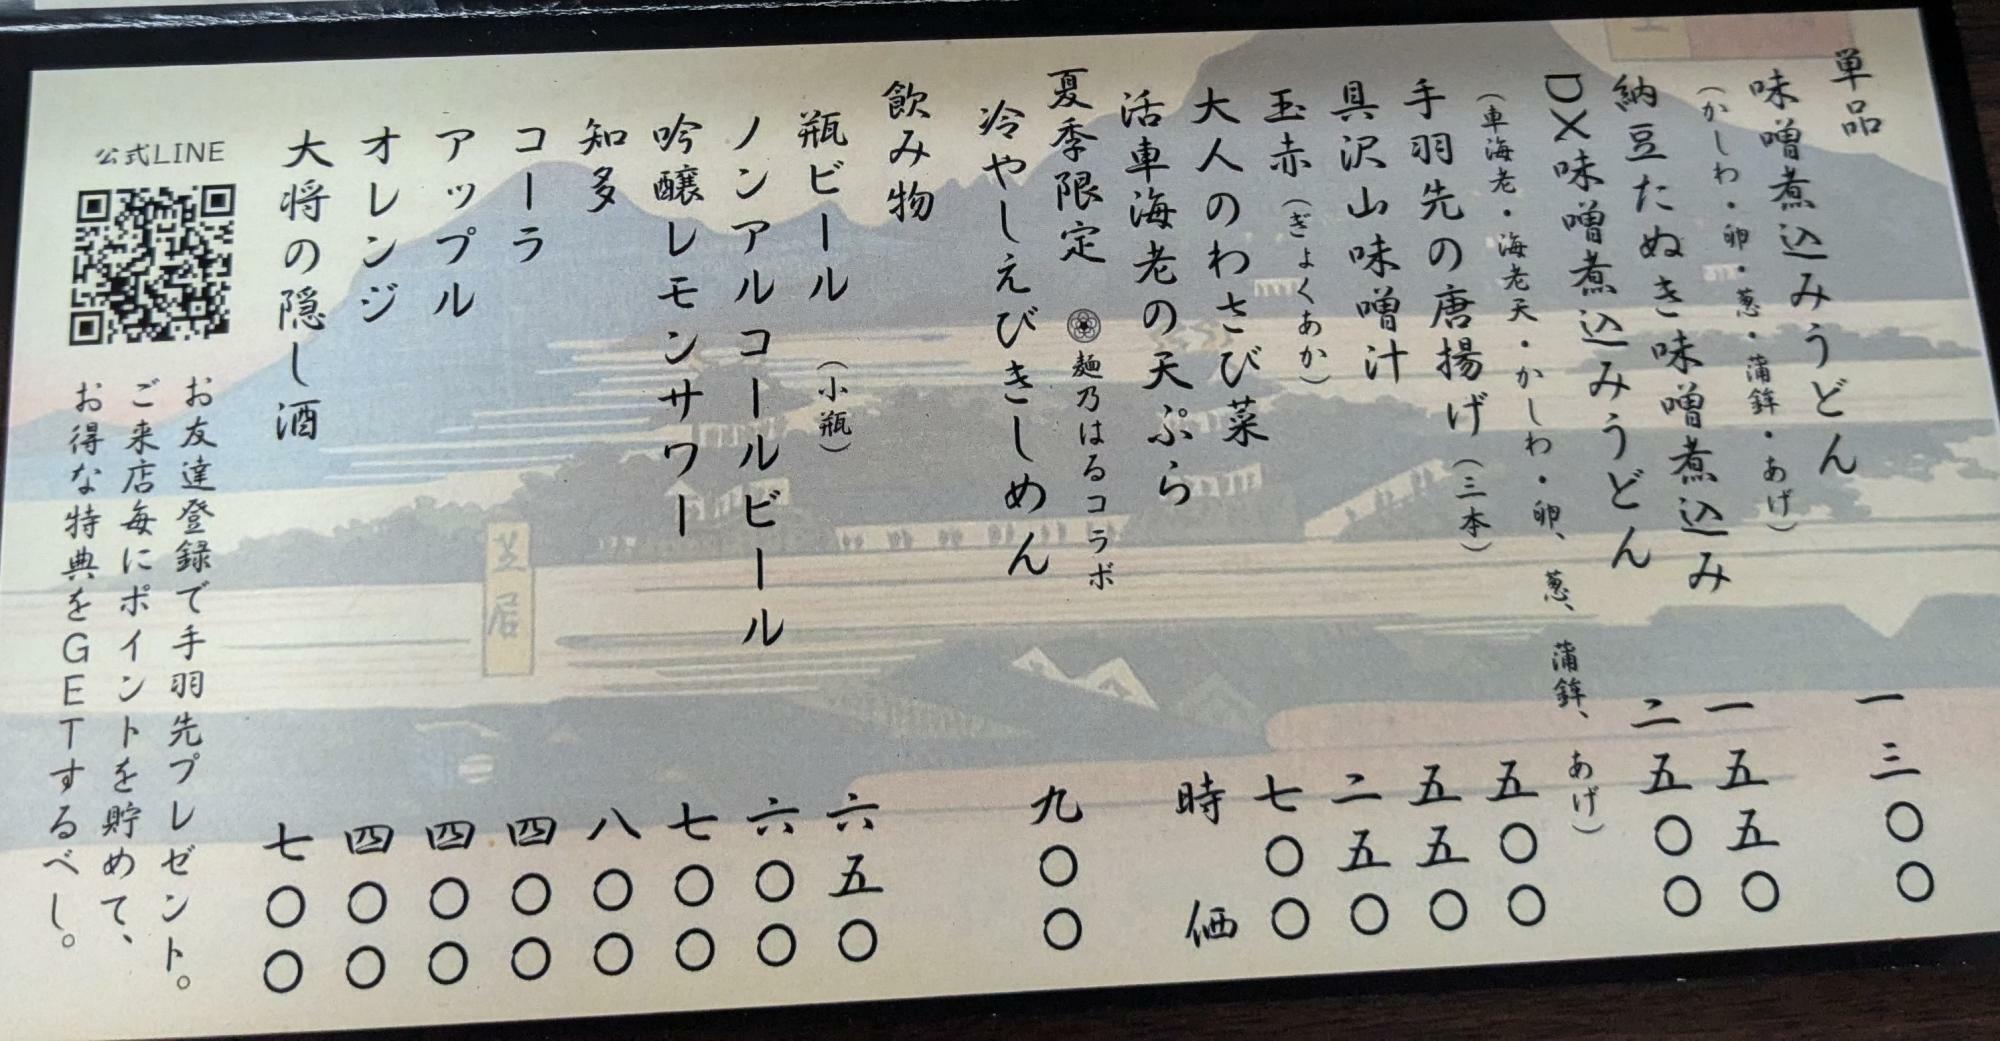 単品
味噌煮込みうどん 一三〇〇
（かしわ・卵・葱・蒲鉾・あげ）
納豆たぬき味噌煮込み 一五五〇
DX味噌煮込みうどん 二五〇〇
（車海老・海老天・かしわ・卵、葱、蒲鉾、あげ）
手羽先の唐揚げ（三本） 五〇〇
具沢山味噌汁 五五〇
玉赤（ぎょくあか） 二五〇
大人のわさび菜 七〇〇
活車海老の天ぷら 時価
夏季限定 麺乃はるコラボ
冷やしえびきしめん 九〇〇
飲み物
瓶ビール（小瓶） 六五〇
ノンアルコールビール 六〇〇
吟醸レモンサワー 七〇〇
知多 八〇〇
コーラ 四〇〇
アップル 四〇〇
オレンジ 四〇〇
大将の隠し酒 七〇〇
公式LINE
お友達登録で手羽先プレゼント。
ご来店毎にポイントを貯めて、
お得な特典をGETするべし。